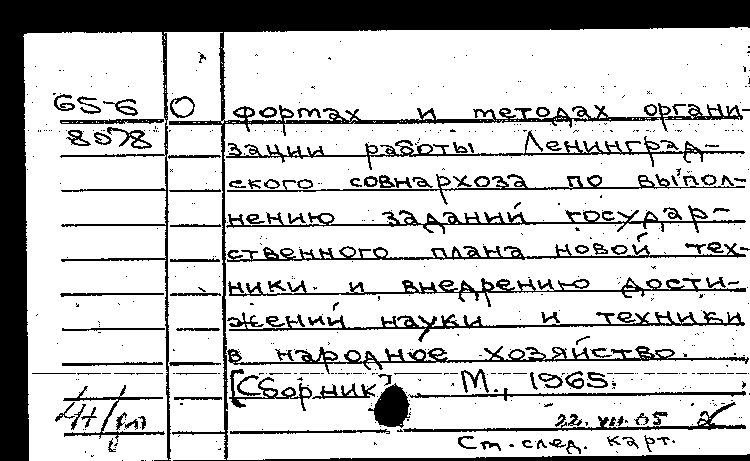 65-6 О формах и методах органи-
8078 зации работы Ленинград-
ского совнархоза по выпол-
нению заданий государ-
ственного плана новой тех-
ники и внедрению дости-
жений науки и техники
в народное хозяйство.
[Сборник]. М., 1965.
22.VII.65
Ст. след. карт.